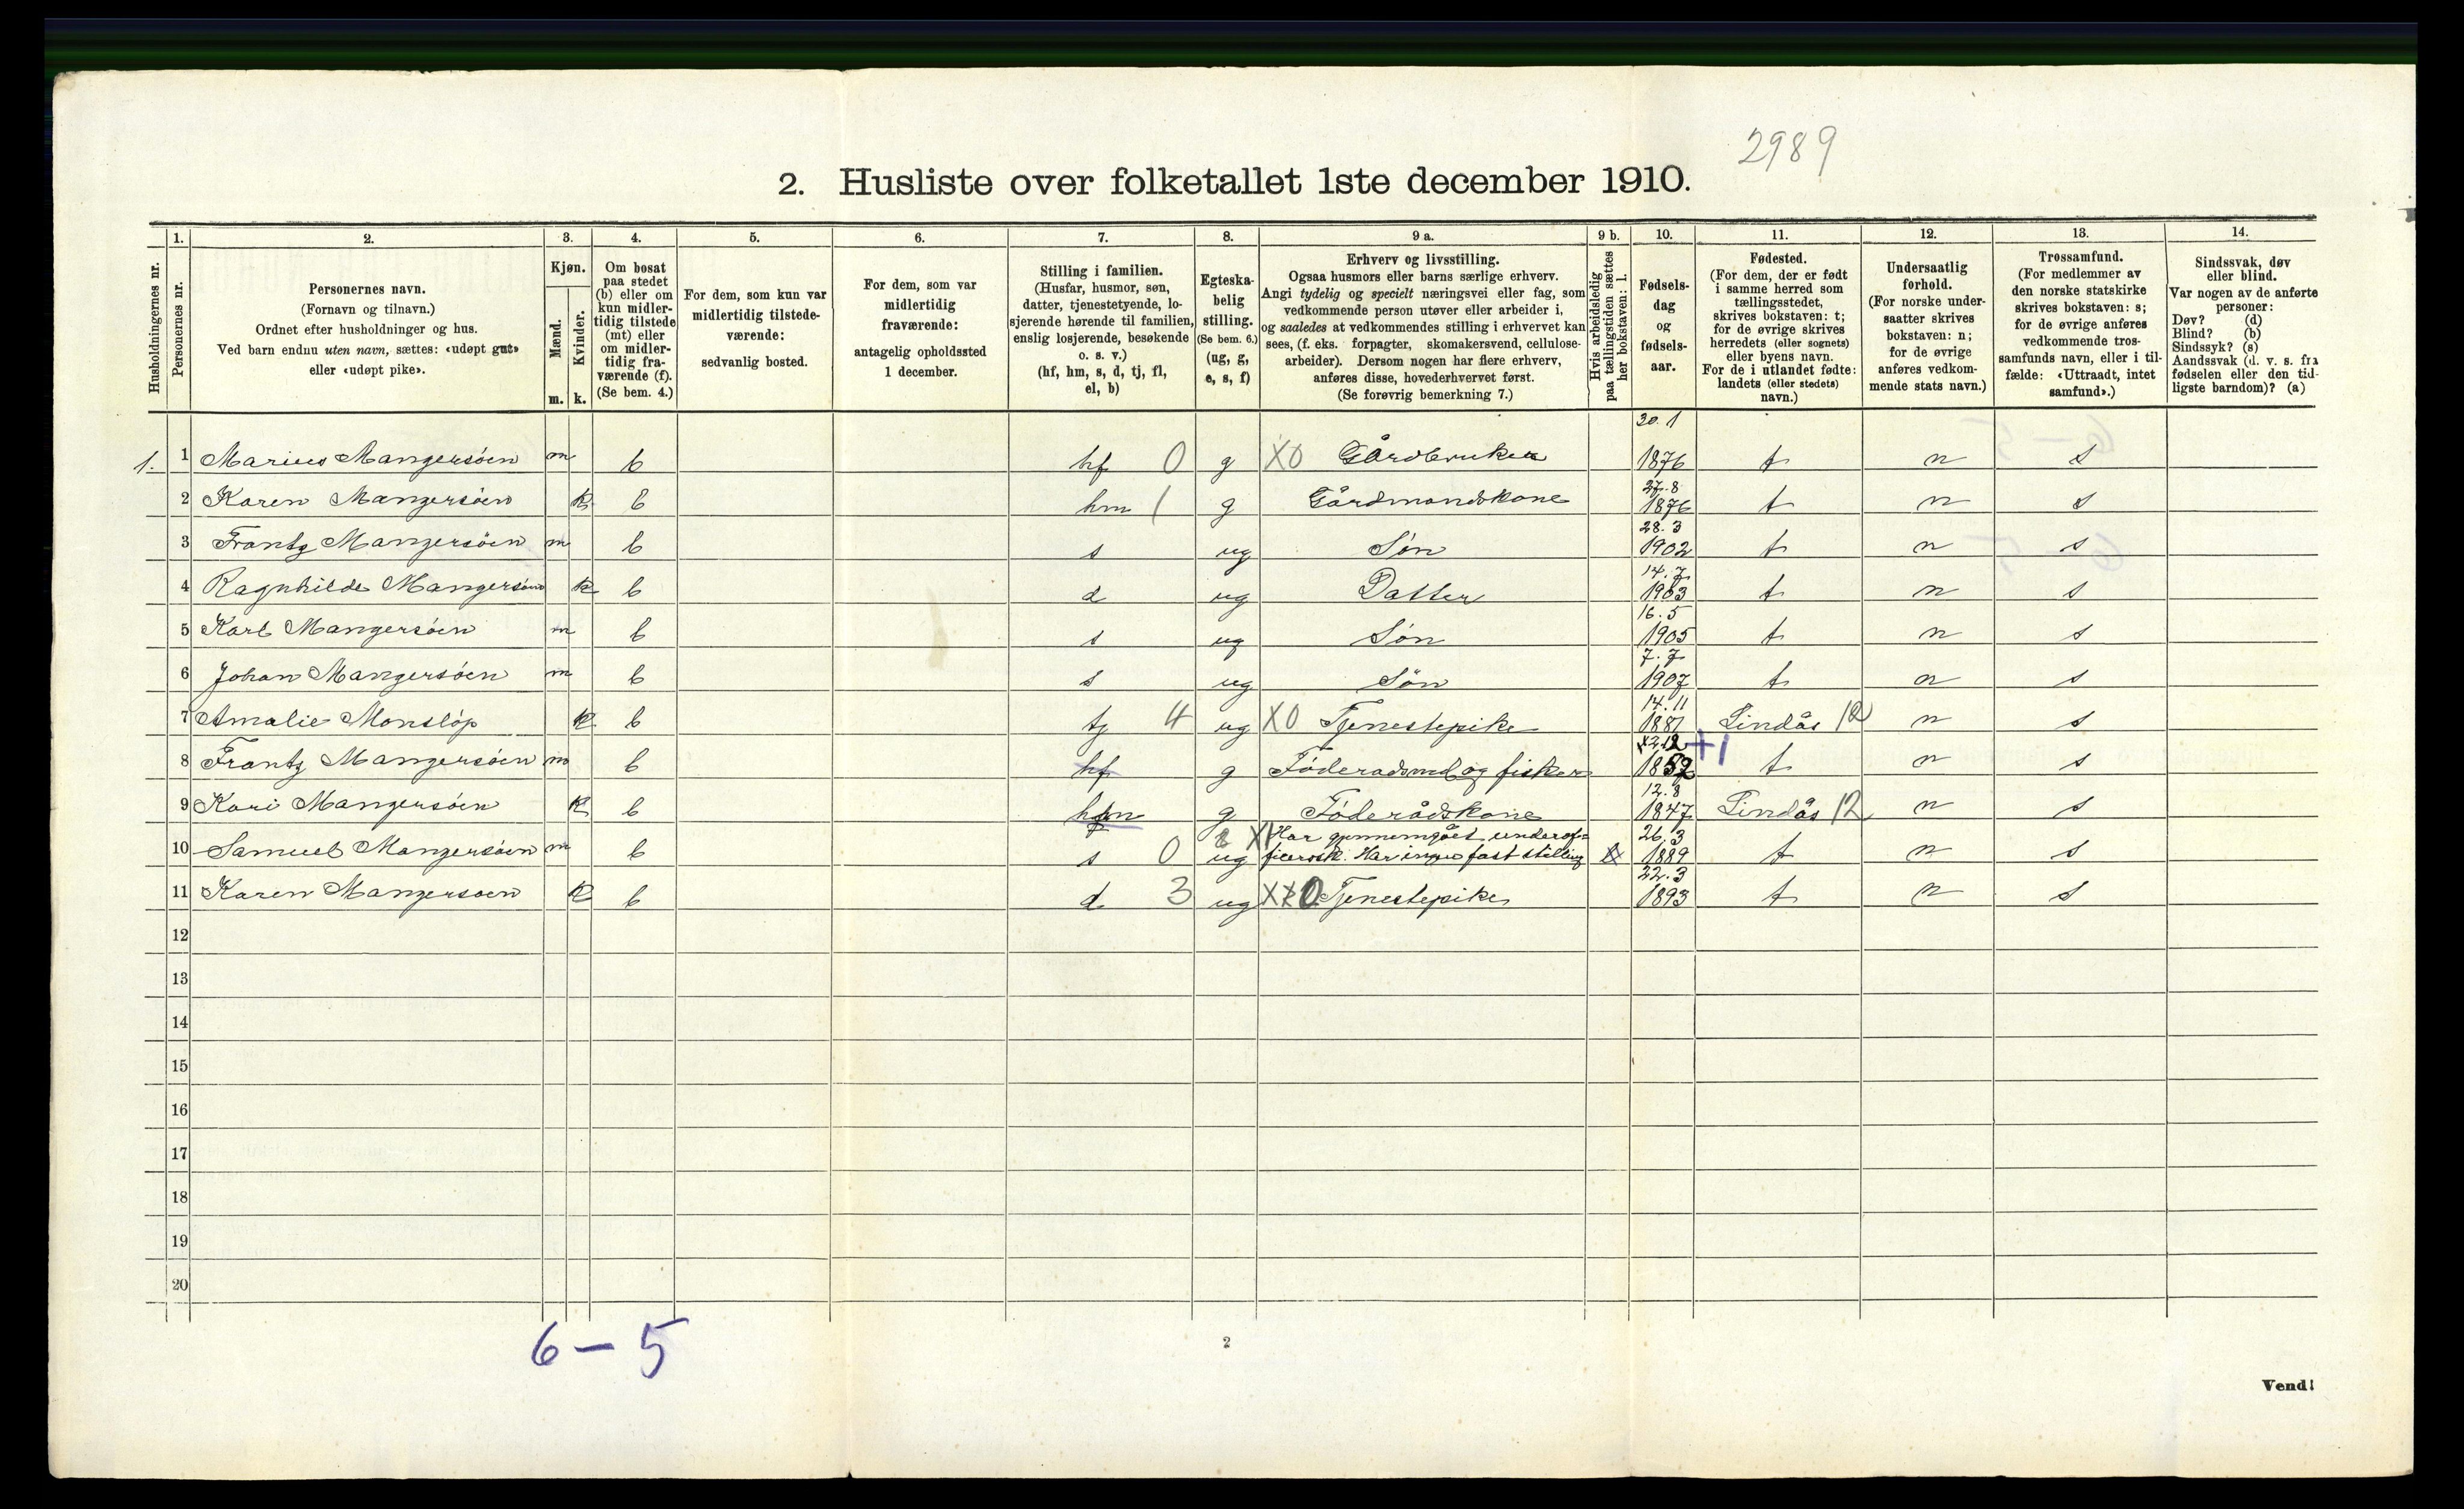 2989
2. Husliste over folketallet 1ste december 1910.
Husholdningernes nr.
1. Personernes nr.
2. Personernes navn.
(Fornavn og tilnavn.)
Ordnet efter husholdninger og hus.
Ved barn endnu uten navn, sættes: «udøpt gut»
eller «udøpt pike».
3. Kjøn.
Mænd. Kvinder.
m. k.
4. Om bosat
paa stedet
(b) eller om
kun midler-
tidig tilstede
(mt) eller
om midler-
tidig fra-
værende (f).
(Se bem. 4.)
5. For dem, som kun var
midlertidig tilstede-
værende:
sedvanlig bosted.
6. For dem, som var
midlertidig
fraværende:
antagelig opholdssted
1 december.
7. Stilling i familien.
(Husfar, husmor, søn,
datter, tjenestetyende, lo-
sjerende hørende til familien,
enslig losjerende, besøkende
o. s. v.)
(hf, hm, s, d, tj, fl,
el, b)
8. Egteska-
belig
stilling.
(Se bem. 6.)
(ug, g,
e, s, f)
9 a. Erhverv og livsstilling.
Ogsaa husmors eller barns særlige erhverv.
Angi tydelig og specielt næringsvei eller fag, som
vedkommende person utøver eller arbeider i,
og saaledes at vedkommendes stilling i erhvervet kan
sees, (f. eks. forpagter, skomakersvend, cellulose-
arbeider). Dersom nogen har flere erhverv,
anføres disse, hovederhvervet først.
(Se forøvrig bemerkning 7.)
9 b. Hvis arbeidsledig
paa tællingstiden sættes
her bokstaven: l.
10. Fødsels-
dag
og
fødsels-
aar.
11. Fødested.
(For dem, der er født
i samme herred som
tællingsstedet,
skrives bokstaven: t;
for de øvrige skrives
herredets (eller sognets)
eller byens navn.
For de i utlandet fødte:
landets (eller stedets)
navn.)
12. Undersaatlig
forhold.
(For norske under-
saatter skrives
bokstaven: n;
for de øvrige
anføres vedkom-
mende stats navn.)
13. Trossamfund.
(For medlemmer av
den norske statskirke
skrives bokstaven: s;
for de øvrige anføres
vedkommende tros-
samfunds navn, eller i til-
fælde: «Uttraadt, intet
samfund».)
14. Sindssvak, døv
eller blind.
Var nogen av de anførte
personer:
Døv? (d)
Blind? (b)
Sindssyk? (s)
Aandssvak (d. v. s. fra
fødselen eller den tid-
ligste barndom)? (a)
1. 1 Marius Mangersöen m b hf 0 g X0 Gårdbruker 30. 1 1876 t n s
2 Karen Mangersöen k b hm 1 g Gårdmandskone 27.8 1876 t n s
3 Frantz Mangersöen m b s ug Sön 28.3 1902 t n s
4 Ragnhilde Mangersöen k b d ug Datter 14.7 1903 t n s
5 Karl Mangersöen m b s ug Sön 16.5 1905 t n s
6 Johan Mangersöen m b s ug Sön 7.7 1907 t n s
7 Amalie Monslöp k b tj 4 ug X0 Tjenestepike 14.11 1887 Lindås 12 n s
8 Frantz Mangersöen m b hf g Föderadsmd og fisker 1852 +1 t n s
9 Kari Mangersöen k b g Föderådskone 12.8 1847 Lindås 12 n s
10 Samuel Mangersöen m b s 0 ug X1 Har gjennemgået underof=
ficersk. Har ingen fast stilling 26.3 1889 t n s
11 Karen Mangersoen k b d 3 ug Tjenestepike 22.3 1893 t n s
12
13
14
15
16
17
18
19
20
6 - 5
2
Vend!